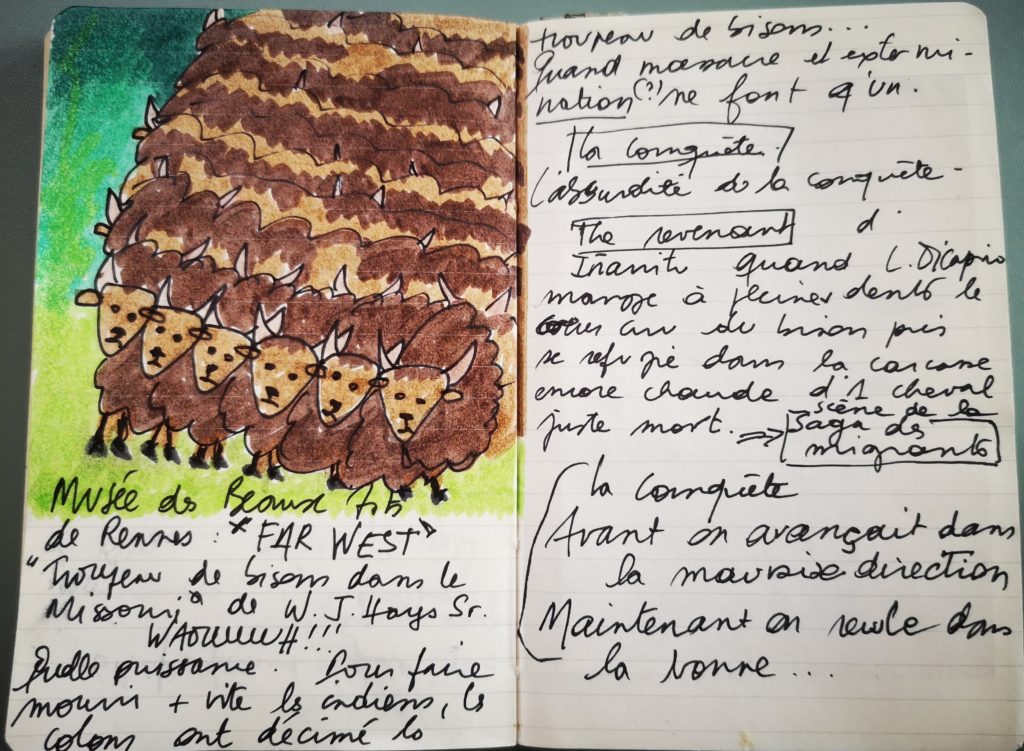 Musée des Beaux Arts
de Rennes : "FAR WEST"
"Troupeau de bisons dans le
Missouri" de W. J. Hays Sr.
WAOUUUUH!!!
Quelle puissance. Pour faire
mourir + vite les indiens, les
colons ont décimé les
troupeau de bisons...
Quand massacre et extermi-
nation(?) ne font qu'un.
La conquête.
L'absurdité de la conquête.
The revenant
Inanité quand L. DiCaprio
mange à pleines dents le
cru du bison puis
se refugie dans la carcasse
encore chaude d'1 cheval
juste mort. ⇒ scène de la
Saga des
migrants
La conquête
Avant on avançait dans
la mauvaise direction
Maintenant on recule dans
la bonne...